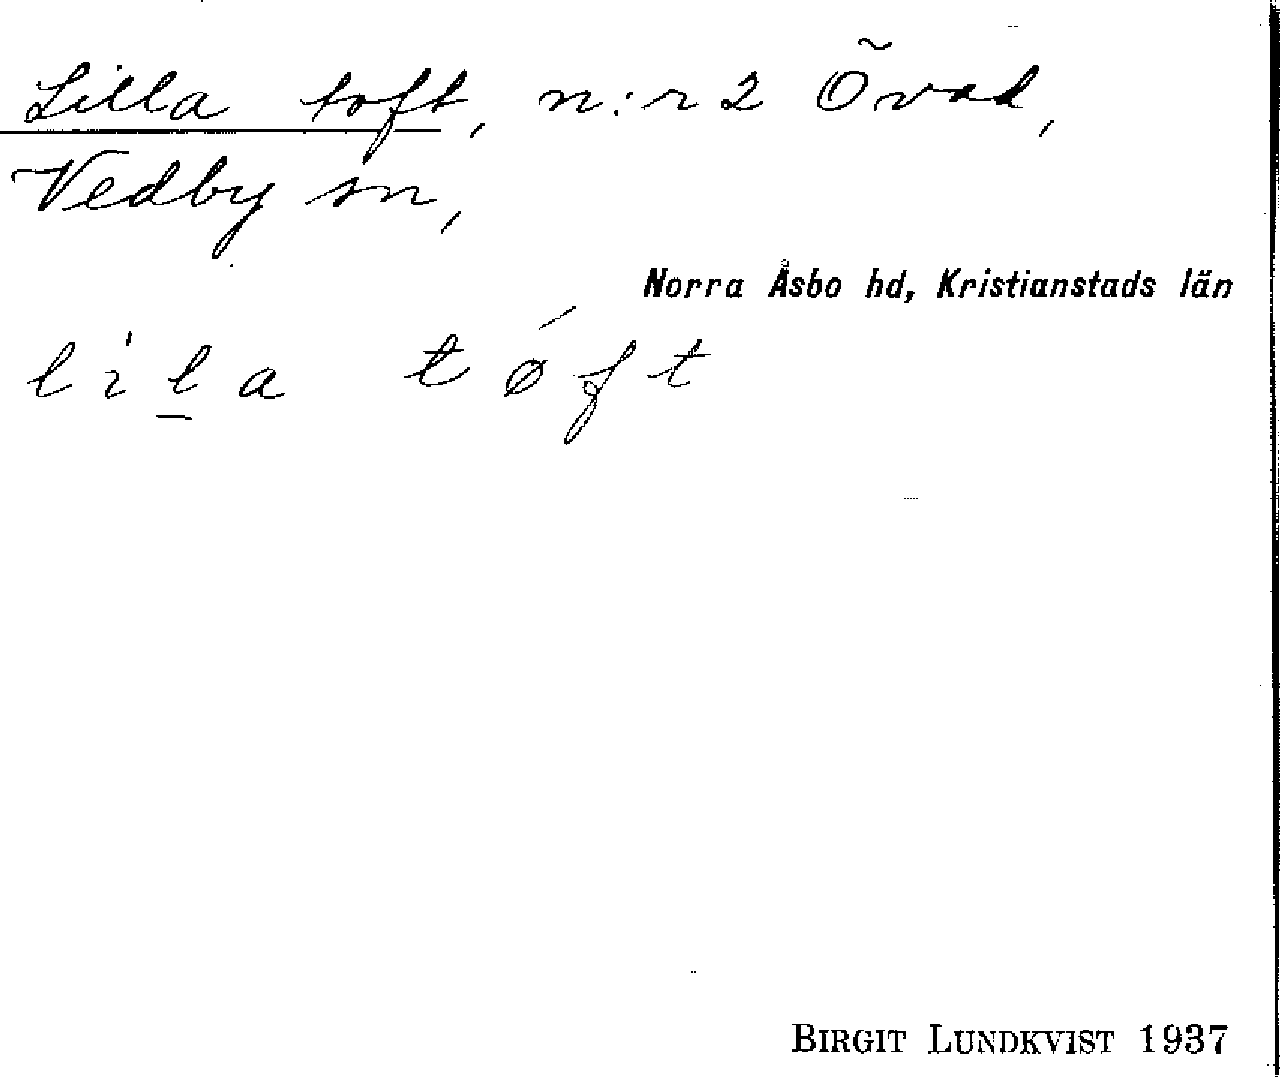 Lilla toft, n:r 2 Övad,
Vedby sn,
Norra Åsbo hd, Kristianstads län
lila tøft
BIRGIT LUNDKVIST 1937